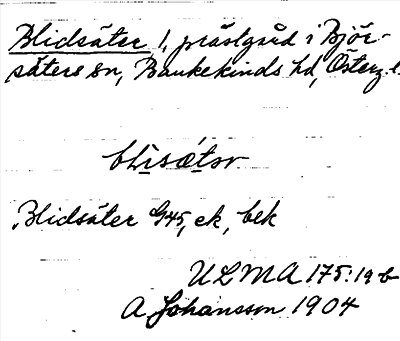 Blidsäter 1, prästgård i Bjür-
säters sn, Bankekinds hd, Österg. l.
blìsǽtər
Blidsäter G45, ek, bek
ULMA 175:19b
A Johansson 1904